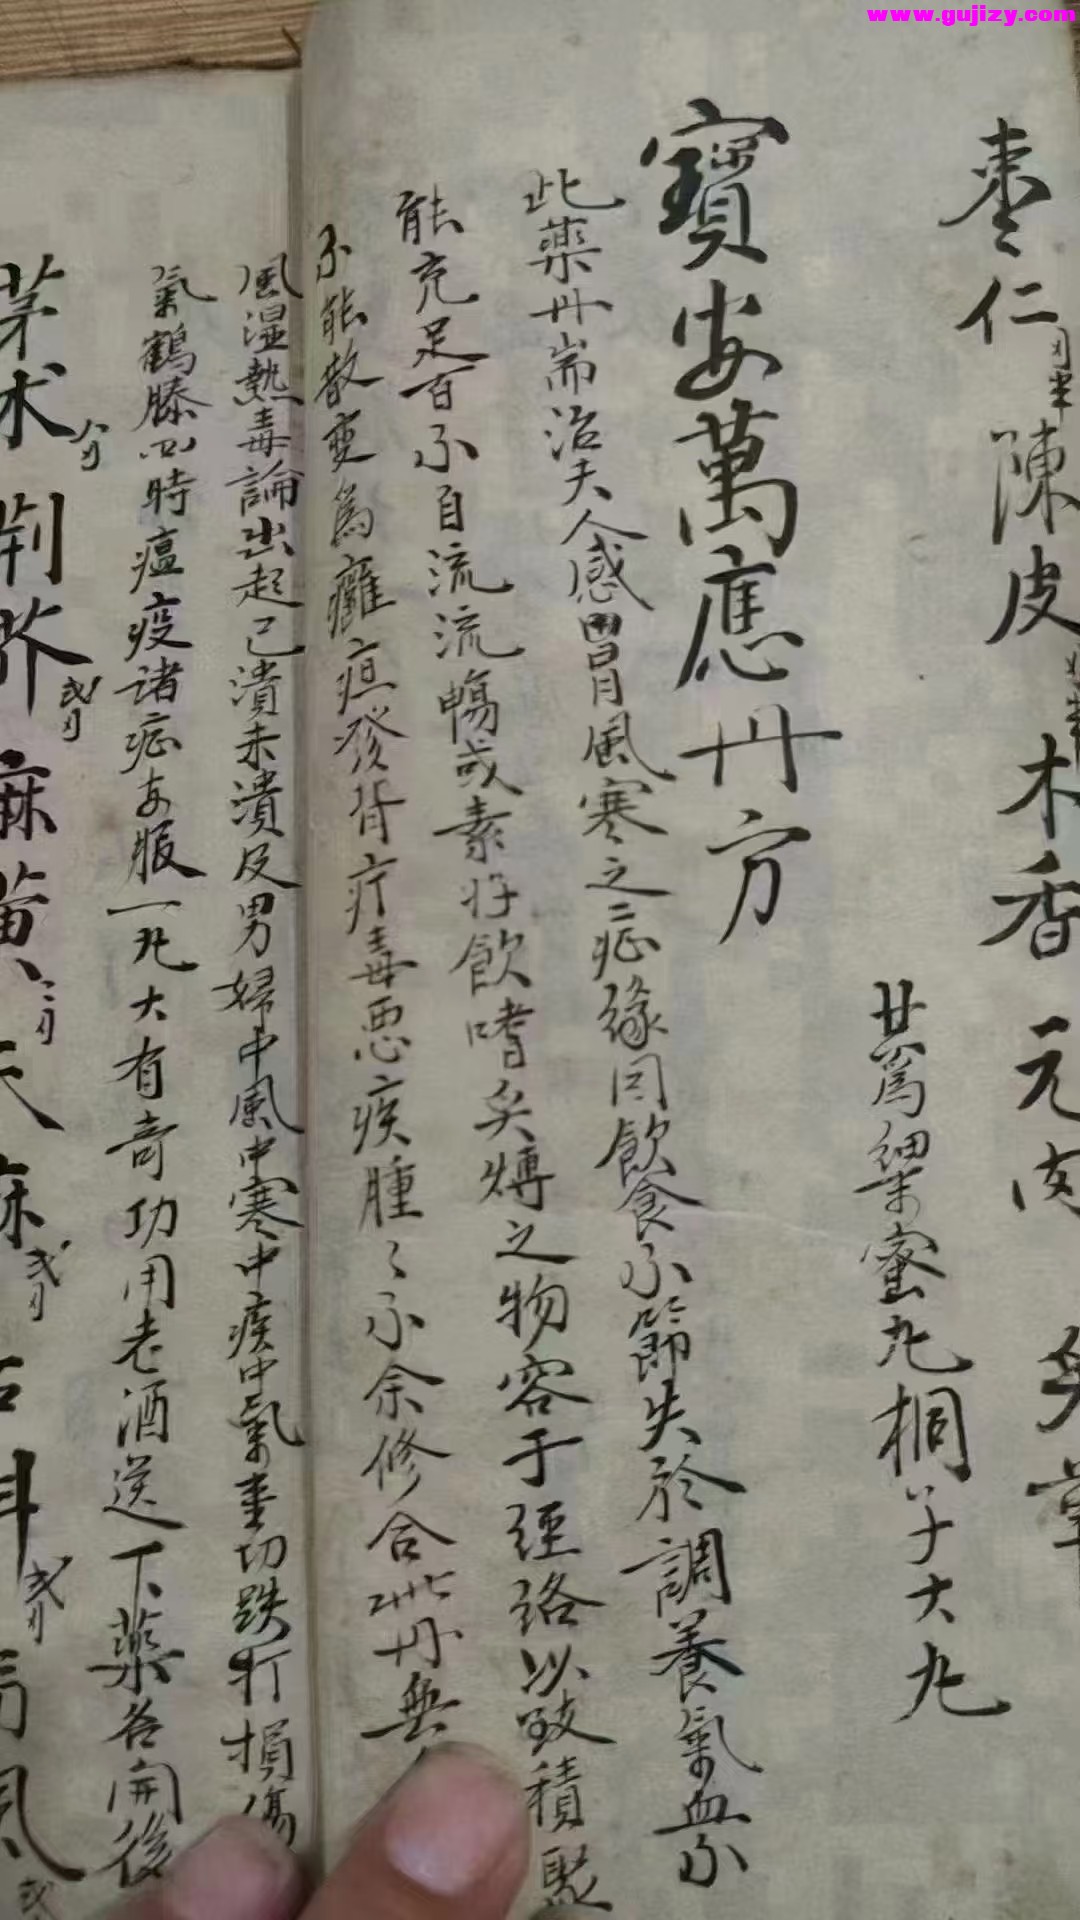 www.gujizy.com
棗仁 陳皮 木香 元肉 草
共爲細末蜜丸桐子大丸
寶安萬應丹方
此藥丹耑治夫人感冒風寒之症緣因飲食不節失於調養氣血不
能充足百不自流流暢或素好飲嗜炙煿之物容于經絡以致積聚
不能散變爲癰疽發背疔毒恶疾腫〻不余修合此丹無
風湿熱毒論出起已潰未潰及男婦中風中寒中痰中氣 切跌打損傷
氣鶴膝四時瘟疫諸症每服一丸大有奇功用老酒送下藥各開後
茅术 荆芥 弍刄 麻黄 三刄 天麻 弍刄 弍刄 風